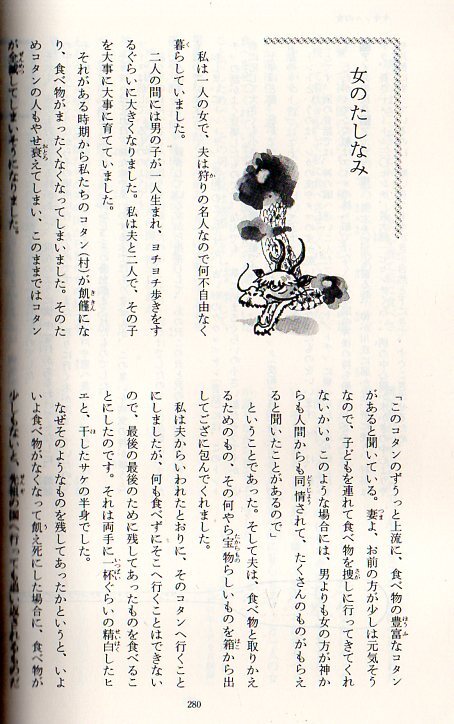 女のたしなみ
私は一人の女で、夫は狩りの名人なので何不自由なく
暮らしていました。
二人の間には男の子が一人生まれ、ヨチヨチ歩きをす
るぐらいに大きくなりました。私は夫と二人で、その子
を大事に大事に育てていました。
それがある時期から私たちのコタン(村)が飢饉にな
り、食べ物がまったくなくなってしまいました。そのた
めコタンの人もやせ衰えてしまい、このままではコタン
が全滅してしまいそうになりました。
「このコタンのずうっと上流に、食べ物の豊富なコタン
があると聞いている。妻よ、お前の方が少しは元気そう
なので、子どもを連れて食べ物を捜しに行ってきてくれ
ないかい。このような場合には、男よりも女の方が神か
らも人間からも同情されて、たくさんのものがもらえ
ると聞いたことがあるので」
ということであった。そして夫は、食べ物と取りかえ
るためのもの、その何やら宝物らしいものを箱から出
してござに包んでくれました。
私は夫からいわれたとおりに、そのコタンへ行くこと
にしましたが、何も食べずにそこへ行くことはできない
ので、最後の最後のために残してあったものを食べるこ
とにしたのです。それは両手に一杯ぐらいの精白したヒ
エと、干したサケの半身でした。
なぜそのようなものを残してあったかというと、いよ
いよ食べ物がなくなって飢え死にした場合に、食べ物が
少しもないと、先祖の国へ行っても追い返されるものだ
280